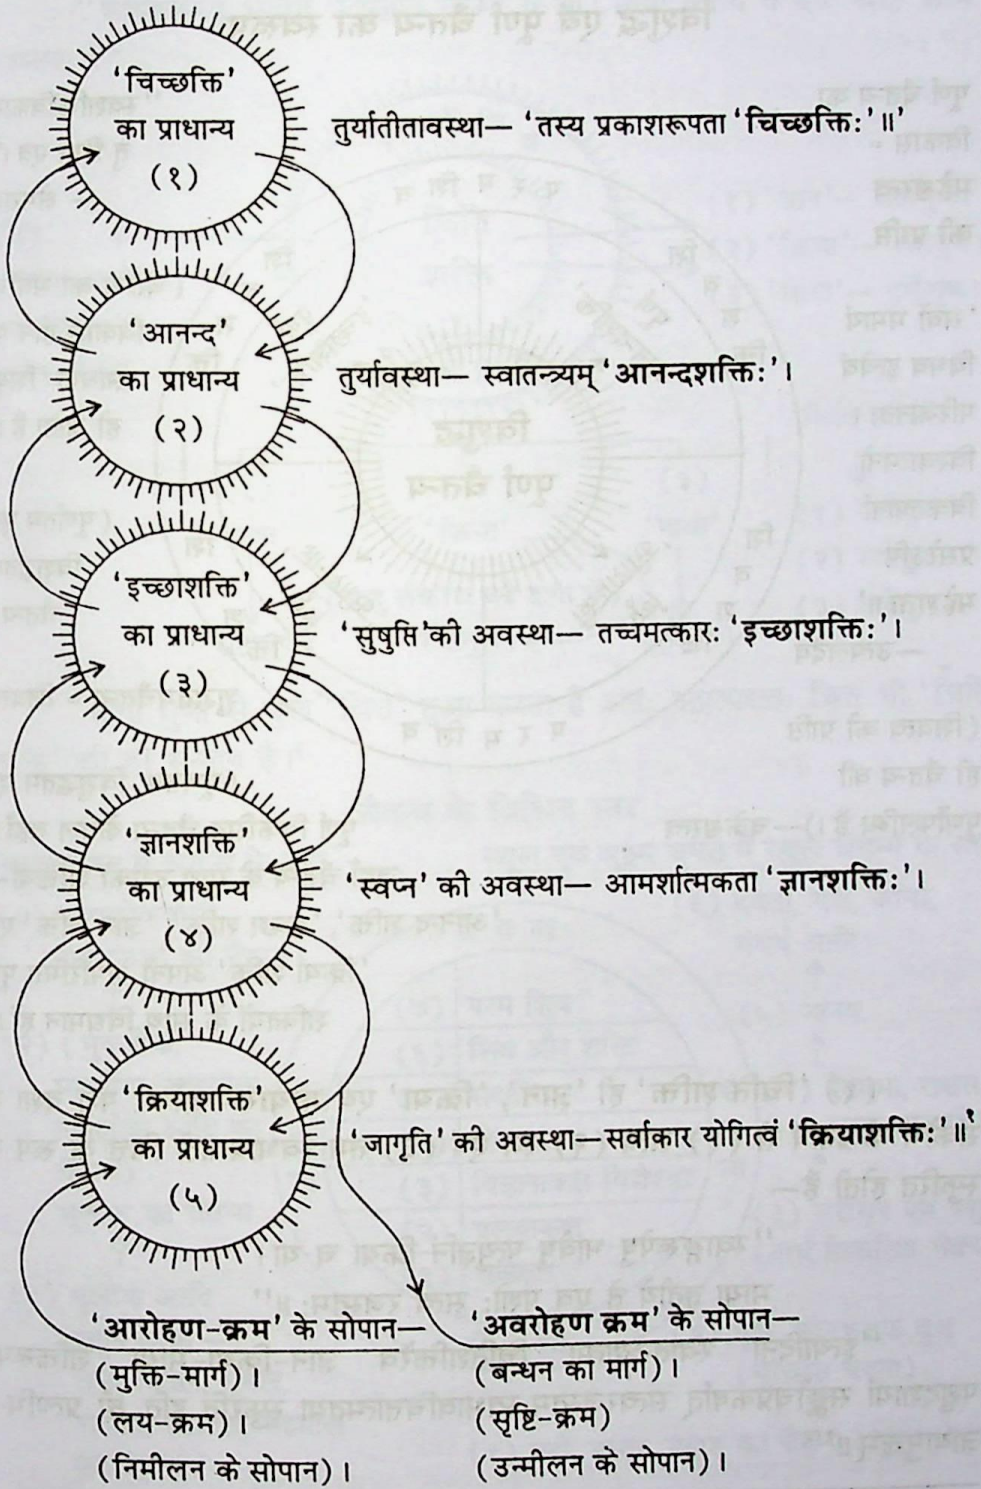 'चिच्छक्ति'
का प्राधान्य
(१)
तुर्यातीतावस्था— 'तस्य प्रकाशरूपता 'चिच्छक्तिः'॥'
'आनन्द'
का प्राधान्य
(२)
तुर्यावस्था— स्वातन्त्र्यम् 'आनन्दशक्तिः'।
'इच्छाशक्ति'
का प्राधान्य
(३)
'सुषुप्ति'की अवस्था— तच्चमत्कारः 'इच्छाशक्तिः'।
'ज्ञानशक्ति'
का प्राधान्य
(४)
'स्वप्न' की अवस्था— आमर्शात्मकता 'ज्ञानशक्तिः'।
'क्रियाशक्ति'
का प्राधान्य
(५)
'जागृति' की अवस्था—सर्वाकार योगित्वं 'क्रियाशक्तिः'॥१
'आरोहण-क्रम' के सोपान—
(मुक्ति-मार्ग)।
(लय-क्रम)।
(निमीलन के सोपान)।
'अवरोहण क्रम' के सोपान—
(बन्धन का मार्ग)।
(सृष्टि-क्रम)
(उन्मीलन के सोपान)।